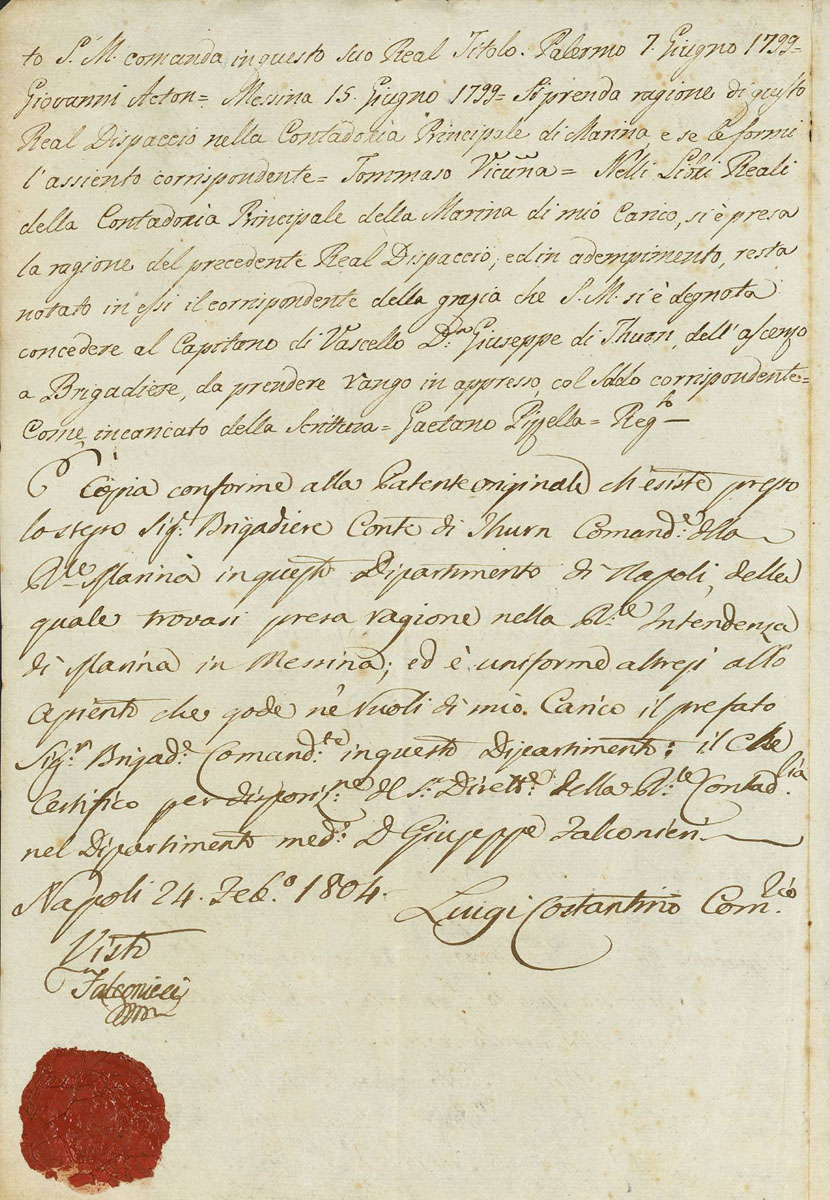 to S. M. comanda in questo suo Real Titolo. Palermo 7. Giugno 1799=
Giovanni Acton= Messina 15. Giugno 1799= Si prenda ragione di questo
Real Dispaccio nella Contadoria Principale di Marina, e se le formi
l'assiento corrispondente= Tommaso Vicuña= Nelli Libri Reali
della Contadoria Principale della Marina di mio Carico, si è presa
la ragione del precedente Real Dispaccio, ed in adempimento, resta
notato in essi il corrispondente della grazia che S. M. si è degnata
concedere al Capitano di Vascello D.n Giuseppe di Thurn, dell'ascenzo
a Brigadiere, da prendere rango in appresso, col Soldo corrispondente=
Come incaricato della Scrittura= Gaetano Pizzella= Reg.to
Copia conforme alla Patente originale ch'esiste presso
lo stesso Sig.r Brigadiere Conte di Thurn Comand.e della
R.le Marina in questo Dipartimento di Napoli, della
quale trovasi presa ragione nella R.le Intendenza
di Marina in Messina; ed è uniforme altresi allo
Assiento che gode ne' Ruoli di mio Carico il prefato
Sig.r Brigad.e Comand.te in questo Dipartimento; il che
Certifico per disposiz.ne del S.r Dirett.e della R.le Contad.ria
nel Dipartimento med.o D Giuseppe Falconieri.
Napoli 24. Feb.o 1804.
Luigi Costantino Com.rio
Visto
Falconieri